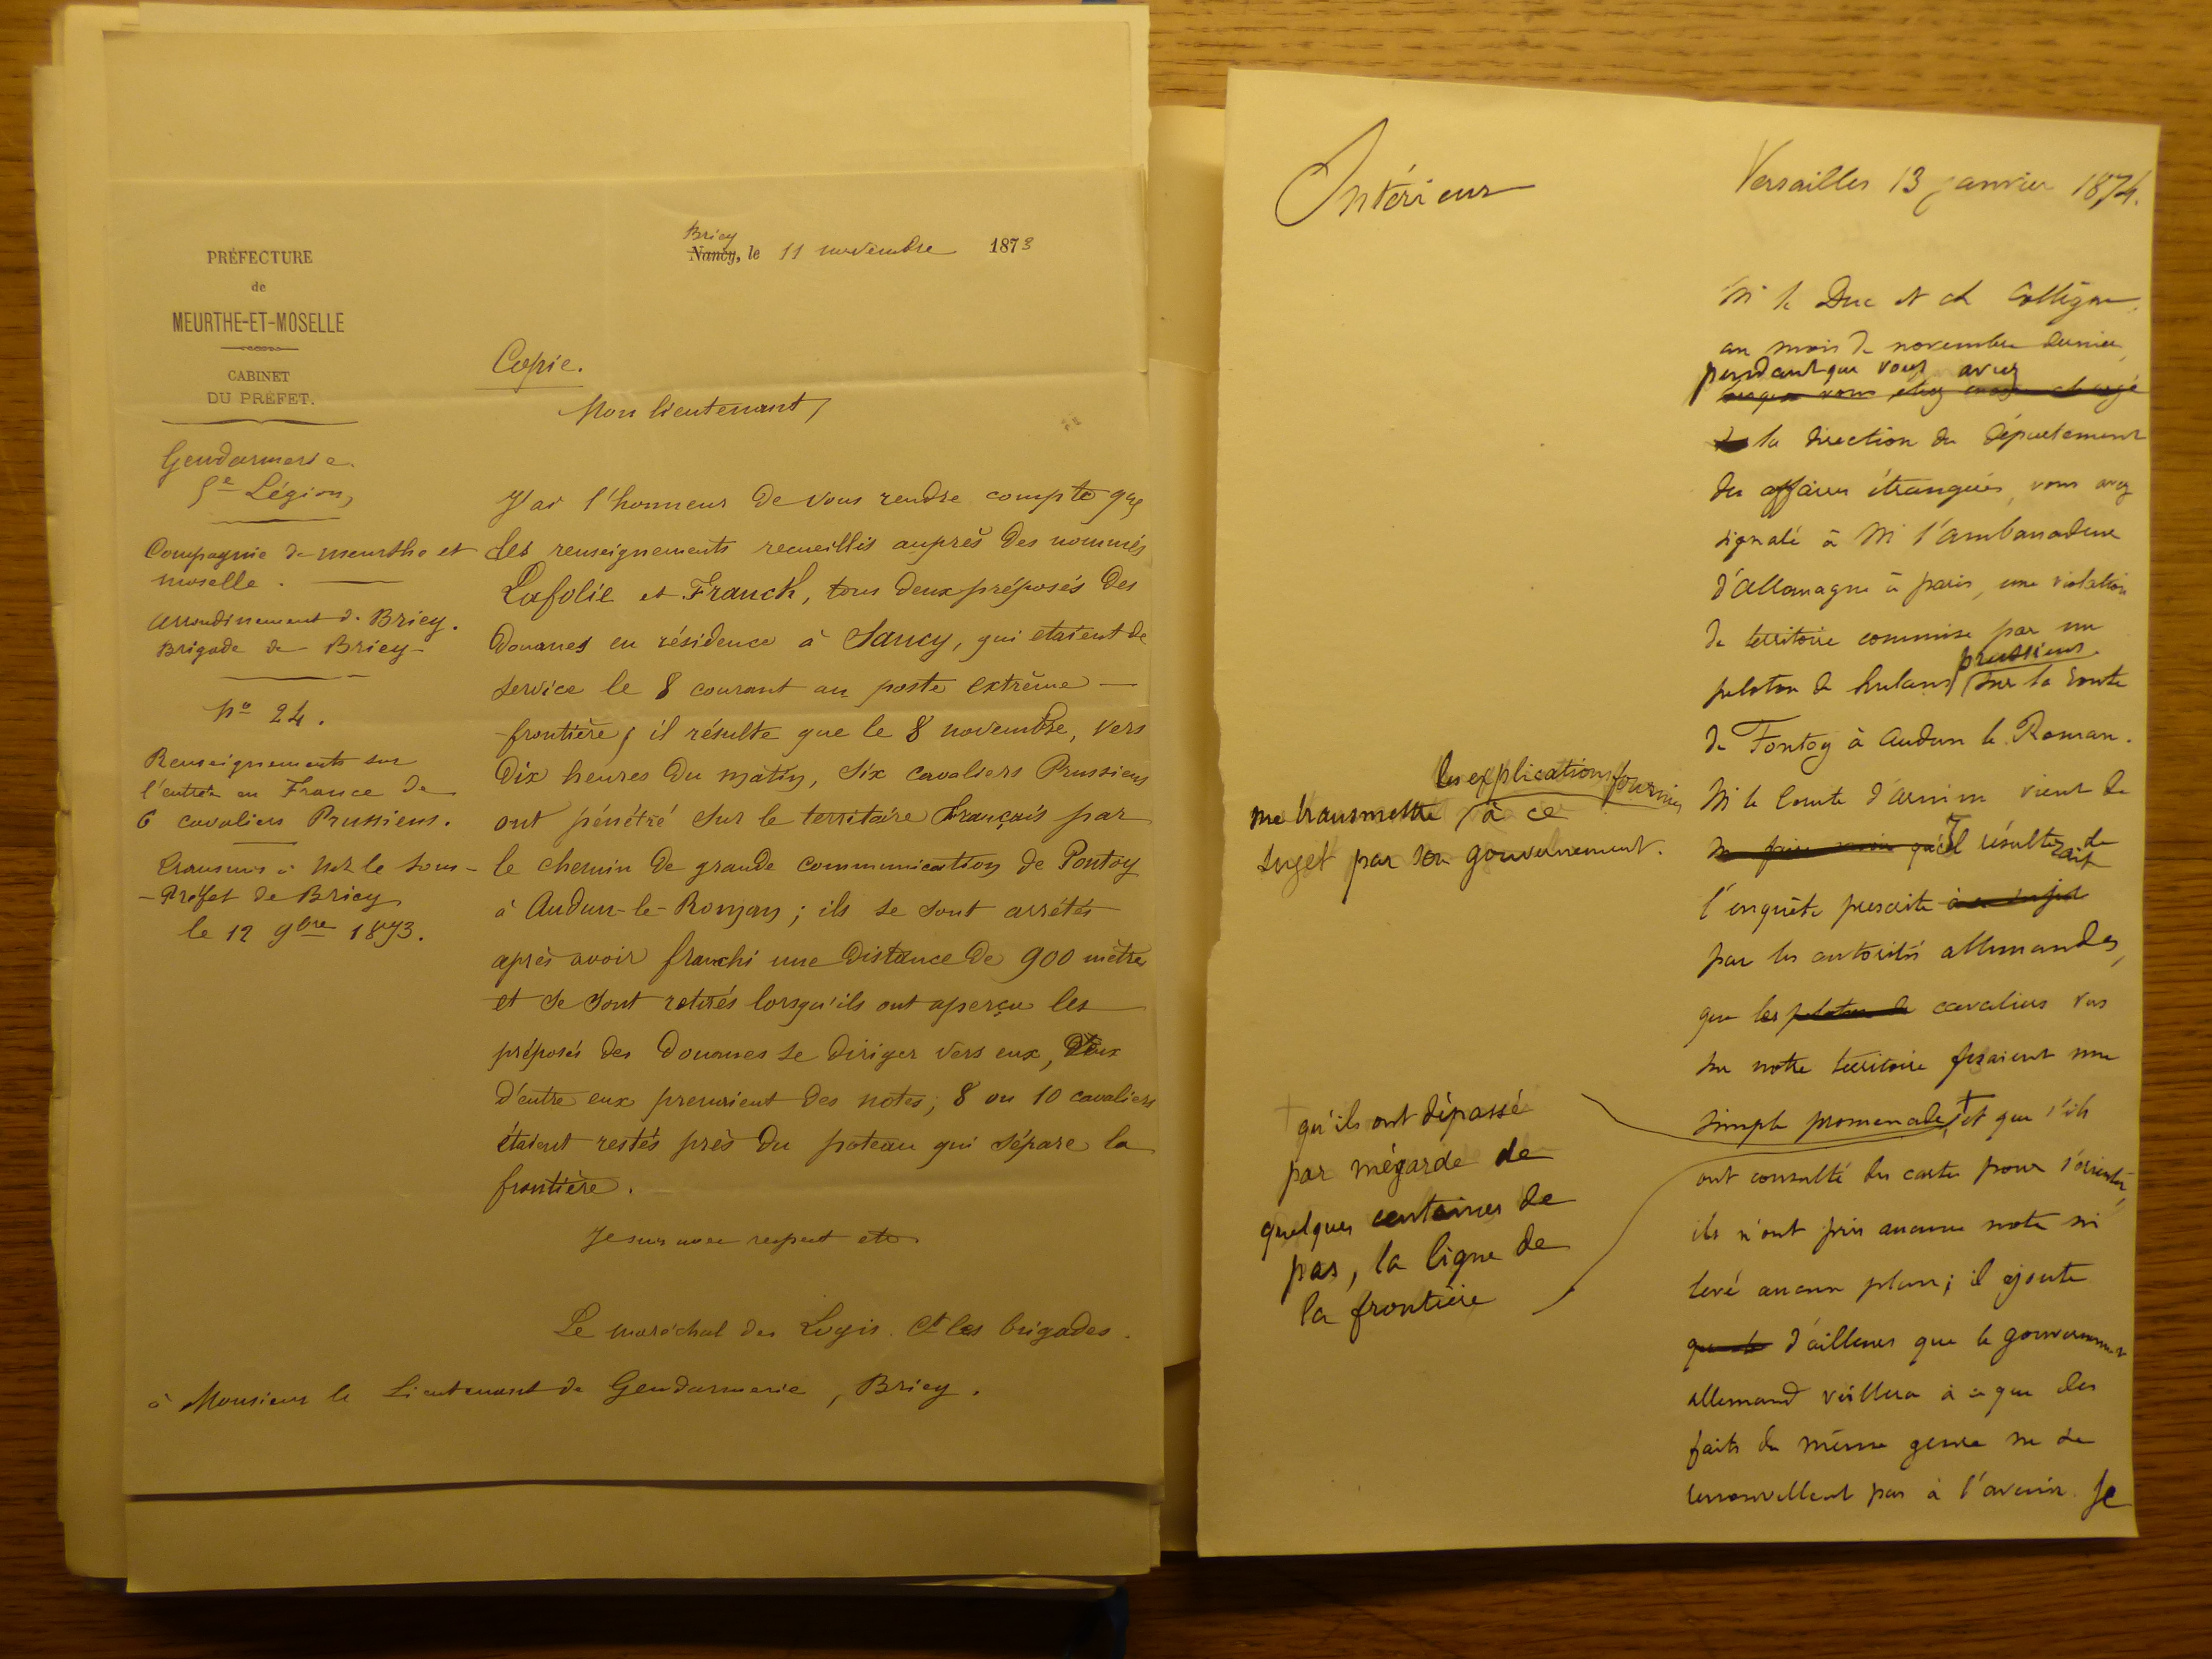 PRÉFECTURE
de
MEURTHE-ET-MOSELLE
CABINET
DU PRÉFET.
Gendarmerie.
5e Légion,
Compagnie de meurthe et
moselle.
arrondissement de Briey.
Brigade de Briey
No 24.
Renseignements sur
l'entrée en France de
6 cavaliers Prussiens.
Transmis à Mr le Sous-
-Préfet de Briey
le 12 9bre 1873.
Briey
Nancy, le 11 novembre 1873
Copie.
Mon lieutenant,
J'ai l'honneur de vous rendre compte que
des renseignements recueillis auprès des nommés
Lafolie et Franck, tous deux préposés des
Douanes en résidence à Sancy, qui etaient de
service le 8 courant au poste extrême
frontière, il résulte que le 8 novembre, vers
dix heures du matin, six cavaliers Prussiens
ont pénétré sur le territoire Français par
le chemin de grande communication de Pontoy
à Audun-le-Roman; ils se sont arrêtés
après avoir franchi une distance de 900 mètres
et se sont retirés lorsqu'ils ont aperçu les
préposés des Douanes se diriger vers eux, Deux
d'entre eux prenaient des notes; 8 ou 10 cavaliers
étaient restés près du poteau qui sépare la
frontière.
Je suis avec respect etc.
Le maréchal des Logis Ct les brigades.
à Monsieur le Lieutenant de Gendarmerie, Briey.
Intérieur
Versailles 13 janvier 1874.
M le Duc et ch Collègue,
au mois de novembre dernier,
pendant que vous aviez
lorsque vous étiez encore chargé
de la direction du Département
des affaires étrangères, vous avez
signalé à M l'ambassadeur
d'Allemagne à paris, une violation
de territoire commise par un
peloton de hulans prussiens sur la route
de Fontoy à Audun le Roman.
M le Comte d'Arnim vient de
me transmettre les explications fournies
à ce
sujet par son gouvernement.
me faire savoir qu'il résulterait de
l'enquête prescrite à ce sujet
par les autorités allemandes,
que les peloton de cavaliers vus
sur notre territoire faisaient une
simple promenade, + et que s'ils
+ qu'ils ont dépassé
par mégarde de
quelques centaines de
pas, la ligne de
la frontière
ont consulté des cartes pour s'orienter,
ils n'ont pris aucune note ni
levé aucun plan; il ajoute
que le d'ailleurs que le gouvernement
allemand veillera à ce que des
faits du même genre ne se
renouvellent pas à l'avenir. Je